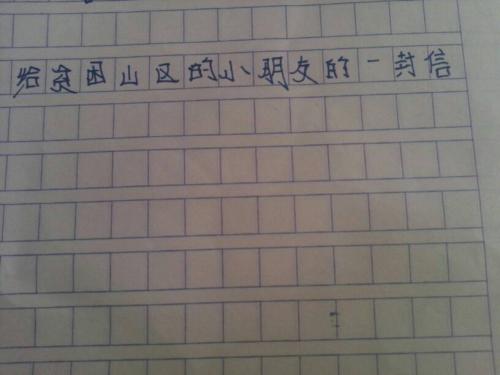 给贫困山区的小朋友的一封信